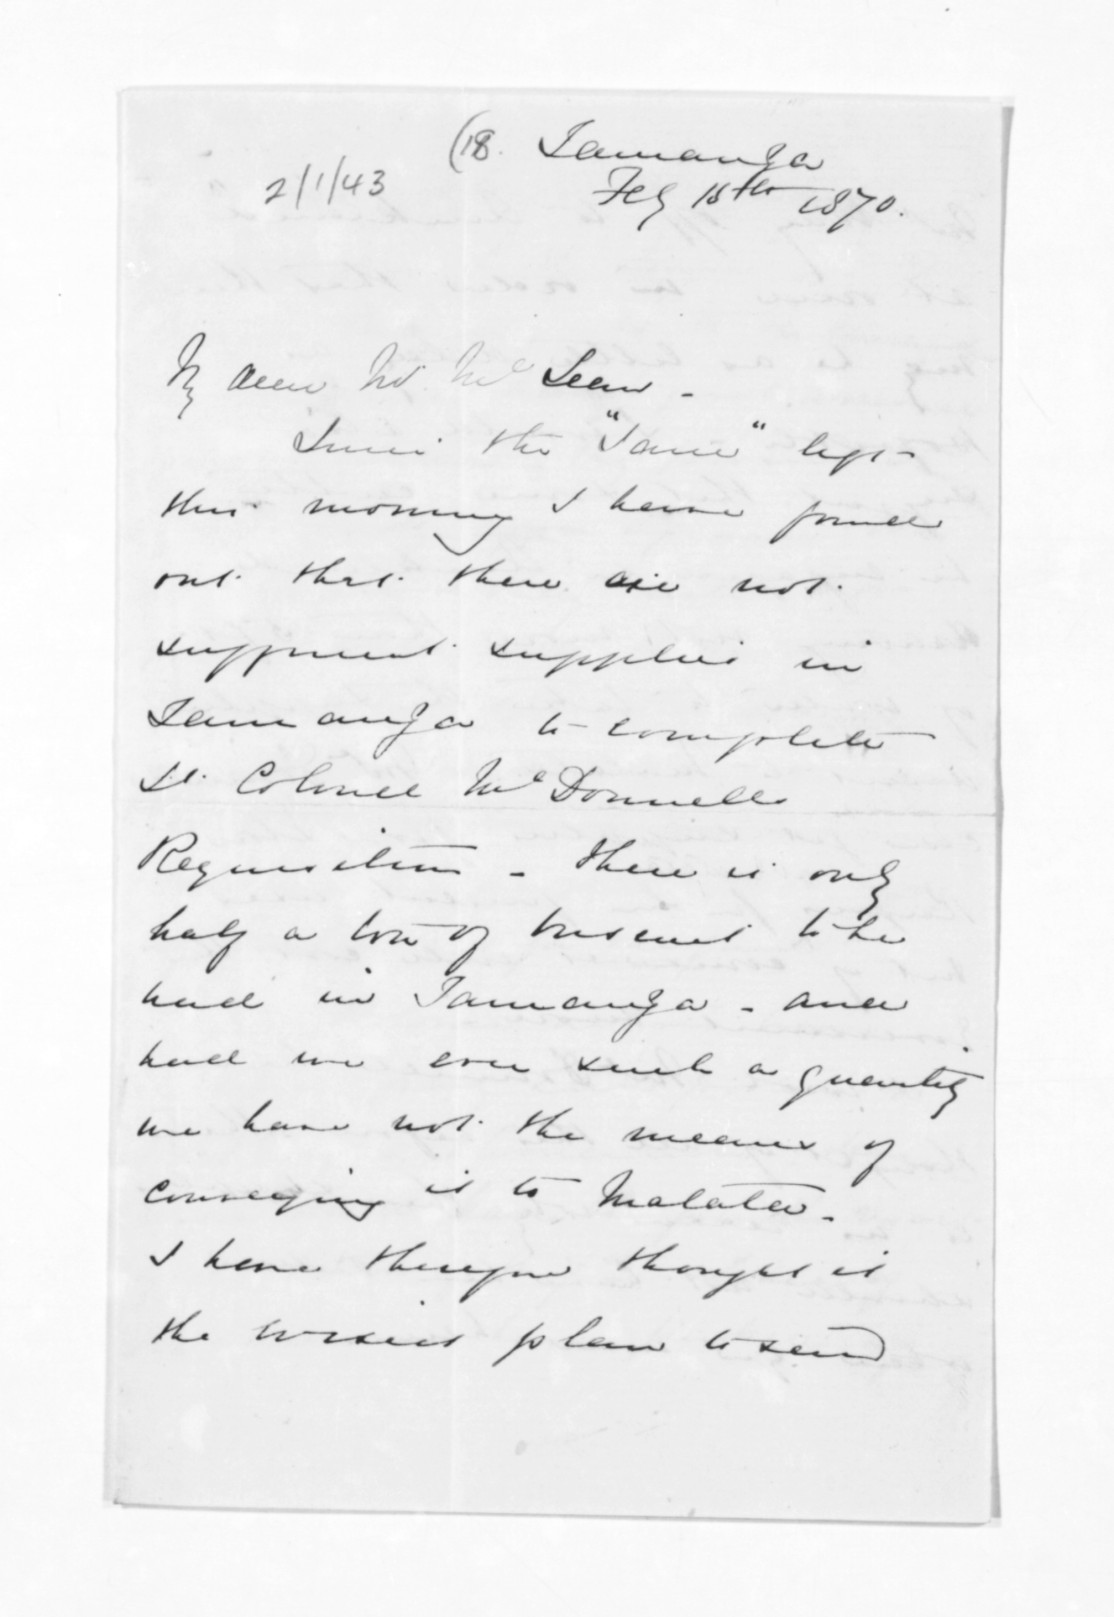 (18. Tauranga
2/1/43
Feby 18th 1870.
My dear Mr. McLean -
Since the "Jane" left
this morning I have found
out that there are not
sufficient supplies in
Tauranga to complete
Lt. Colonel McDonnells
Requisition - there is only
half a ton of biscuit to be
had in Tauranga - and
had we even such a quantity
we have not the means of
conveying it to Matata.
I have therefore thought it
the wisest plan to send